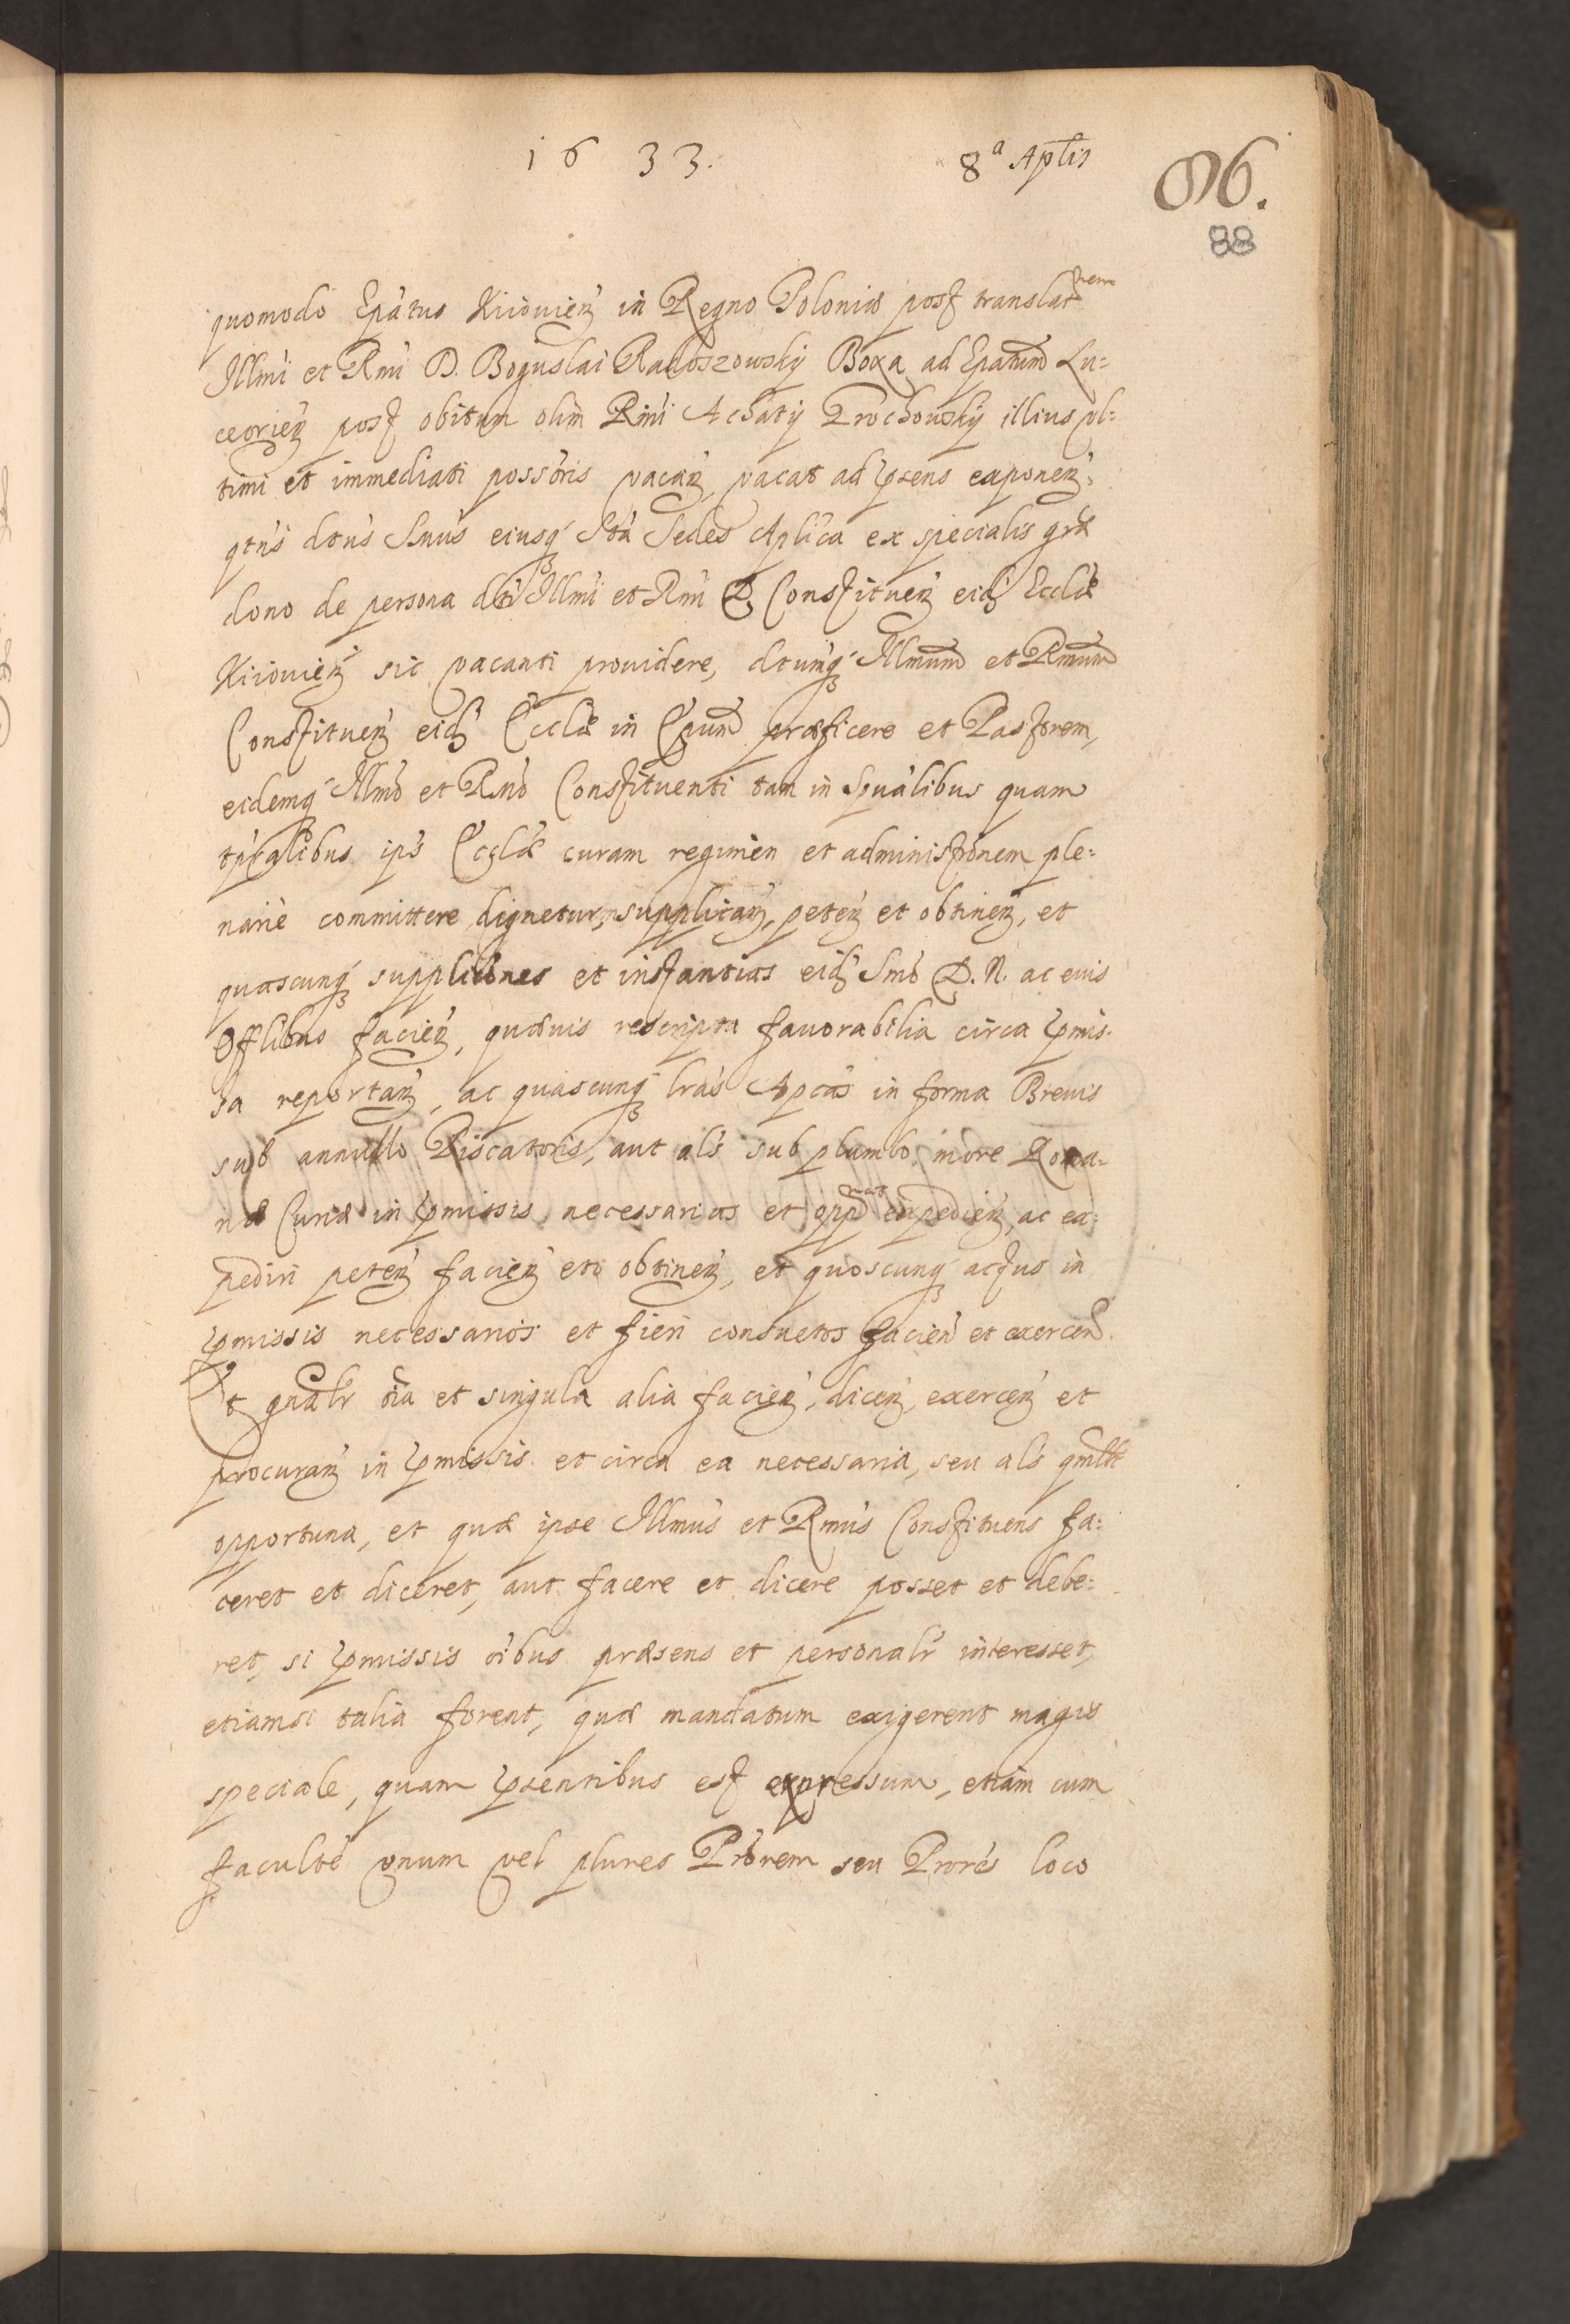 1633. 8ª Aplis 86.
88
quomodo Epatus Kiiouien in Regno Poloniæ post translatnem
Illmi et Rmi D. Boguslai Radoszowskÿ Boxa ad Epatum Lu=
ceorien post obitum olim Rmi Achatÿ Grochowskÿ illius vl=
timi et immediati possoris vacan, vacat ad pñsens exponen,
qtnus dtus Smus eiusq Sta Sedes Aplica ex specialis græ
dono de persona dti Illmi et Rmi D. Constituen eid Ecclæ
Kiiouien sic vacanti prouidere, dtumq Illmum et Rmum
Constituen eid Ecclæ in Epum præficere et Pastorem,
eidemq Illmo et Rmo Constituenti tam in Spualibus quam
tpralibus ips Ecclæ curam regimen et administronem ple=
narie committere dignetur, supplican, peten et obtinen, et
quascunq supplicones et instantias eid Smo D. N. ac eius
Offlibus facien, quæuis rescripta fauorabilia circa pmis=
sa reportan, ac quascunq lras Apcas in forma Breuis
sub annullo Piscatoris, aut als sub plumbo, more Roma=
næ Curiæ in pmissis necessarias et oppnas expedien, ac ex=
pediri peten facien et obtinen, et quoscunq actus in
pmissis necessarios et fieri consuetos facien et exercen.
Et gnalr oia et singula alia facien, dicen, exercen et
procuran in pmissis et circa ea necessaria, seu als qmlt
opportuna, et quæ ipse Illmus et Rmus Constituens fa=
ceret et diceret, aut facere et dicere posset et debe=
ret, si pmissis oibus præsens et personalr interesset,
etiamsi talia forent, quæ mandatum exigerent magis
speciale, quam psentibus est expressum, etiam cum
faculte vnum vel plures Procrem seu Procres loco